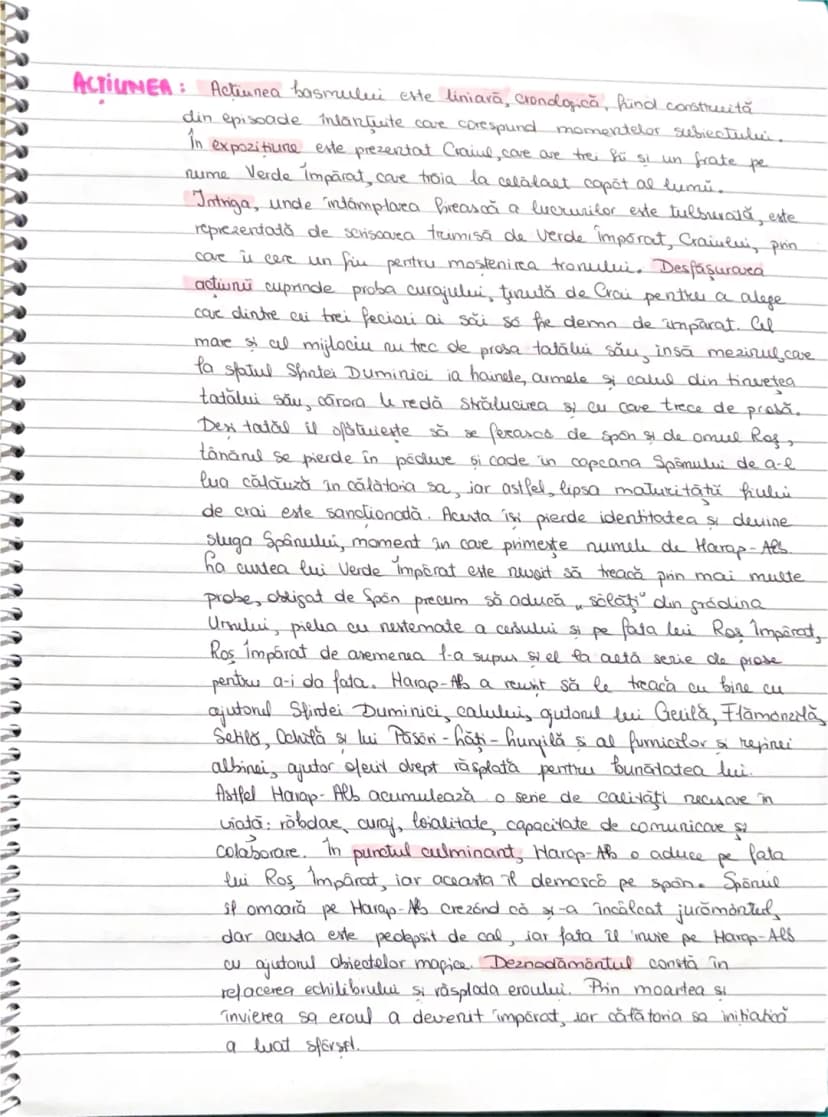 ACȚIUNEA: Acțiunea basmului este liniară, cronologică, fiind construită
din episoade înlănțuite care corespund momentelor subiectului.
În expozițiune este prezentat Craiul, care are trei fii și un frate pe
nume Verde Împărat, care trăia la celălalt capăt al lumii.
Intriga, unde întâmplarea firească a lucrurilor este tulburată, este
reprezentată de scrisoarea trimisă de Verde Împărat, Craiului, prin
care îi cere un fiu pentru moștenirea tronului. Desfășurarea
acțiunii cuprinde proba curajului, ținută de Crai pentru a alege
care dintre cei trei feciori ai săi să fie demn de împărat. Cel
mare și cel mijlociu nu trec de proba tatălui său, însă mezinul, care
la sfatul Sfintei Duminici ia hainele, armele și calul din tinrețea
tatălui său, cărora le redă strălucirea și cu care trece de probă.
Deși tatăl îl sfătuiește să se ferască de spân și de omul Roș,
tânărul se pierde în pădure și cade în capcana Spânului de a-l
lua călăuză în călătoria sa, iar astfel, lipsa maturității fiului
de crai este sancționată. Acesta își pierde identitatea și devine
sluga Spânului, moment în care primește numele de Harap-Alb.
La curtea lui Verde Împărat este nevoit să treacă prin mai multe
probe, obligat de Spân precum să aducă „sălăți" din grădina
Ursului, pielea cu nestemate a cerbului și pe fata lui Roș Împărat,
Roș Împărat de asemenea l-a supus și el la altă serie de probe
pentru a-i da fata. Harap-Alb a reușit să le treacă cu bine cu
ajutorul Sfintei Duminici, calului, ajutorul lui Gerilă, Flămânzilă,
Setilă, Ochilă și lui Păsări-Lăți-Lungilă și al furnicilor și reginei
albinei, ajutor oferit drept răsplată pentru bunătatea lui.
Astfel Harap-Alb acumulează o serie de calități necesare în
viață: răbdare, curaj, loialitate, capacitate de comunicare și
colaborare. În punctul culminant, Harap-Alb o aduce pe fata
lui Roș Împărat, iar aceasta îl demască pe spân. Spânul
îl omoară pe Harap-Alb crezând că și-a încălcat jurământul,
dar acesta este pedepsit de cal, iar fata îl învie pe Harap-Alb
cu ajutorul obiectelor magice. Deznodământul constă în
refacerea echilibrului și răsplata eroului. Prin moartea și
învierea sa eroul a devenit împărat, iar călătoria sa inițiatică
a luat sfârșit.